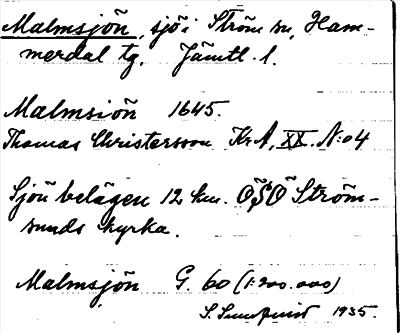 Malmsjön, sjö i Ström sn, Ham-
merdal tg. Jämtl. l.
Malmsiön 1645.
Thomas Christersson KrA, XX. N:o 4
Sjön belägen 12 km. ÖSÖ Ström-
sunds kyrka.
Malmsjön G. 60 (1:200.000)
1935.